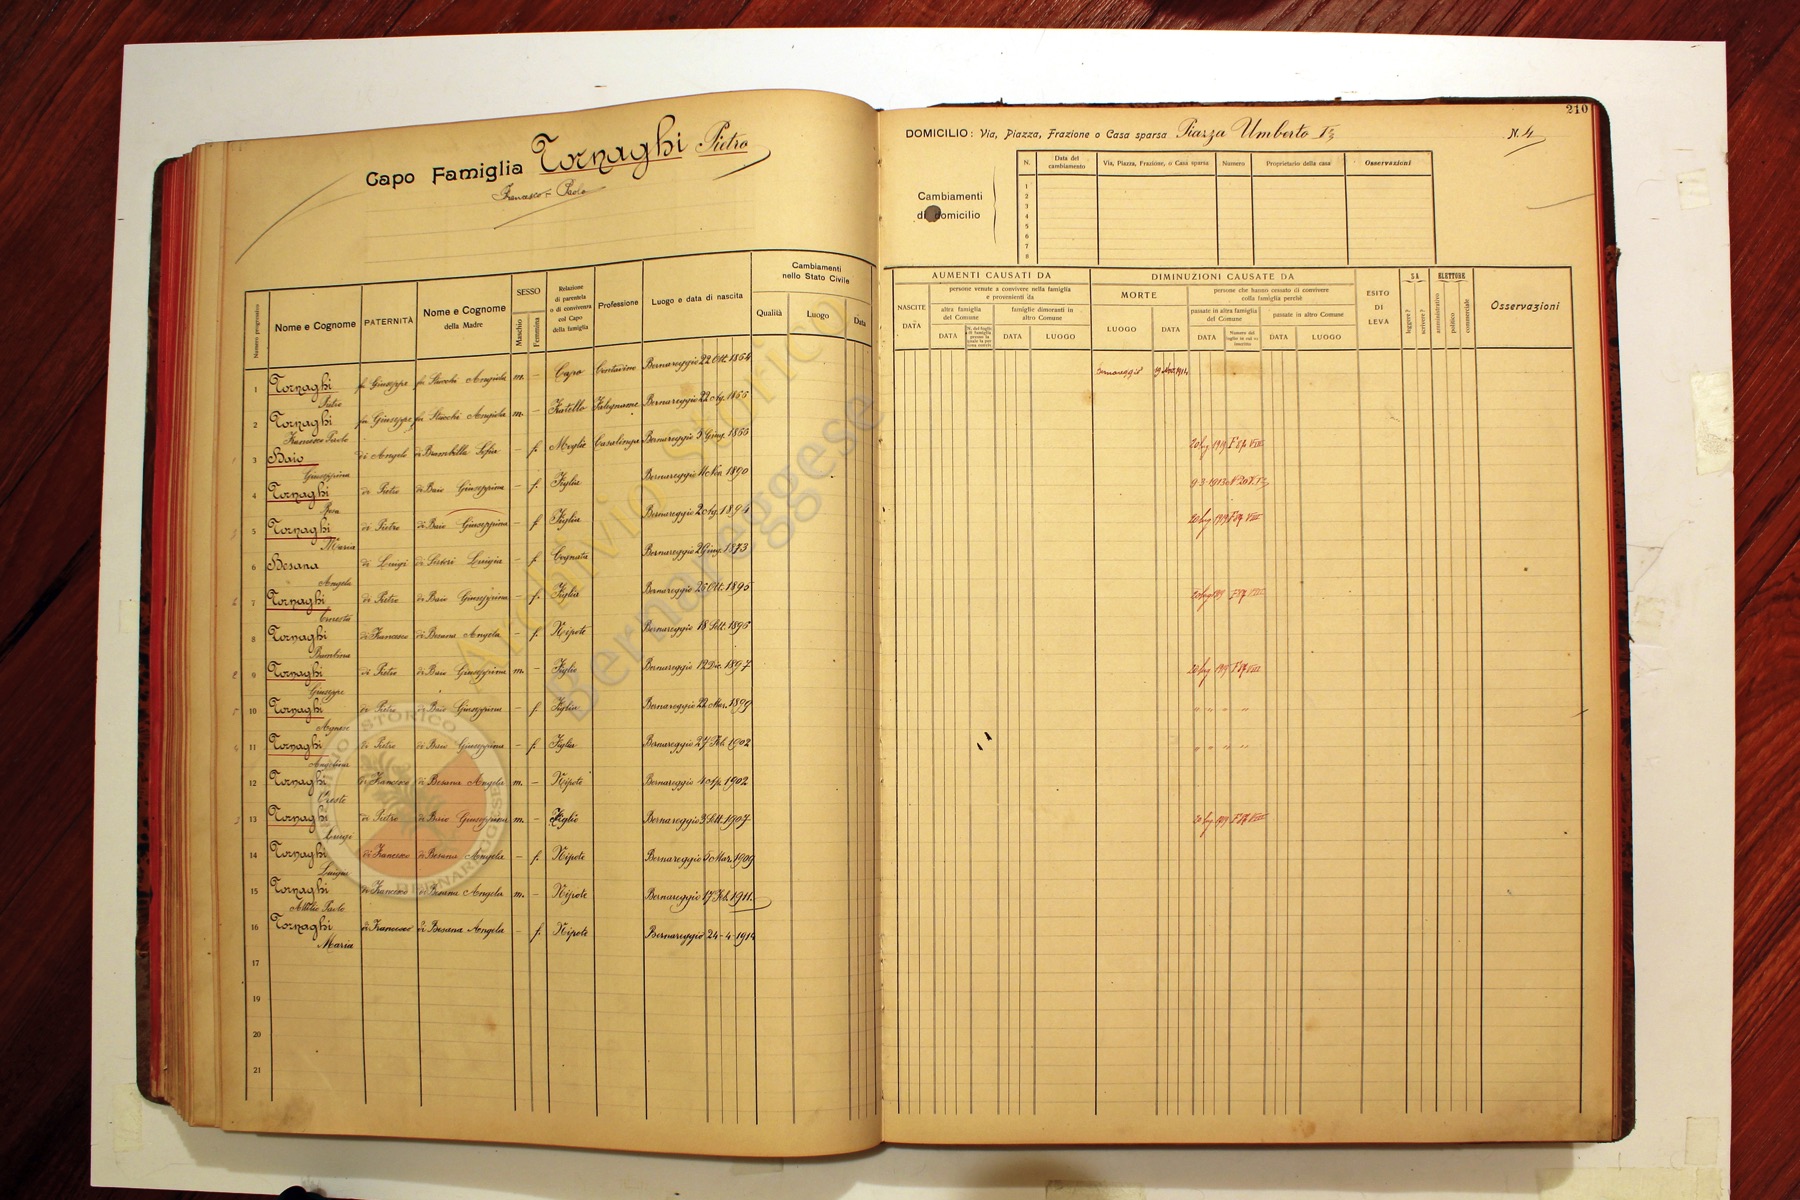 210
Capo Famiglia Tornaghi Pietro
Francesco Paolo
DOMICILIO: Via, Piazza, Frazione o Casa sparsa Piazza Umberto I N. 4
Cambiamenti di domicilio
N. Data del cambiamento Via, Piazza, Frazione, o Casa sparsa Numero Proprietario della casa Osservazioni
1
2
3
4
5
6
7
8
Numero progressivo Nome e Cognome PATERNITÀ Nome e Cognome della Madre SESSO Maschio Femmina Relazione di parentela o di convivenza col Capo della famiglia Professione Luogo e data di nascita Cambiamenti nello Stato Civile Qualità Luogo Data
AUMENTI CAUSATI DA
NASCITE DATA
persone venute a convivere nella famiglia e provenienti da
altra famiglia del Comune DATA
famiglie dimoranti in altro Comune DATA LUOGO
DIMINUZIONI CAUSATE DA
MORTE LUOGO DATA
persone che hanno cessato di convivere colla famiglia perchè
passate in altra famiglia del Comune DATA Numero del foglio in cui si
passate in altro Comune DATA LUOGO
ESITO DI LEVA
SA leggere? scrivere?
ELETTORE amministrativo politico commerciale
Osservazioni
1 Tornaghi Pietro fu Giuseppe fu Stucchi Angiola m. – Capo Contadino Bernareggio 22 Ott. 1864 Bernareggio 19 Nov. 1914
2 Tornaghi Francesco Paolo fu Giuseppe fu Stucchi Angiola m. – Fratello Falegname Bernareggio 22 Ag. 1866
3 Baio Giuseppina di Angelo di Brambilla Sofia – f. Moglie Casalinga Bernareggio 3 Giug. 1866 20 lug 1919 F 87 VIII
4 Tornaghi Rosa di Pietro di Baio Giuseppina – f. Figlia Bernareggio 4 Nov. 1890 9-3-1913
5 Tornaghi Maria di Pietro di Baio Giuseppina – f. Figlia Bernareggio 20 Ag. 1894 20 lug 1919 F 87 VIII
6 Besana Angela di Luigi di Sirtori Luigia – f. Cognata Bernareggio 2 Giug. 1873
7 Tornaghi Ernesta di Pietro di Baio Giuseppina – f. Figlia Bernareggio 25 Ott. 1895 20 lug 1919 F 87 VIII
8 Tornaghi Bambina di Francesco di Besana Angela – f. Nipote Bernareggio 18 Sett. 1895
9 Tornaghi Giuseppe di Pietro di Baio Giuseppina m. – Figlio Bernareggio 12 Dic. 1897 20 lug 1919 F 87 VIII
10 Tornaghi Agnese di Pietro di Baio Giuseppina – f. Figlia Bernareggio 22 Mar. 1899 " " " "
11 Tornaghi Angelina di Pietro di Baio Giuseppina – f. Figlia Bernareggio 27 Feb. 1902 " " " "
12 Tornaghi Oreste di Francesco di Besana Angela m. – Nipote Bernareggio 4 Ap. 1902
13 Tornaghi Luigi di Pietro di Baio Giuseppina m. – Figlio Bernareggio 3 Sett. 1907 20 lug 1919 F 87 VIII
14 Tornaghi Luigia di Francesco di Besana Angela – f. Nipote Bernareggio 5 Mar. 1909
15 Tornaghi Attilio Paolo di Francesco di Besana Angela m. – Nipote Bernareggio 17 Feb. 1911.
16 Tornaghi Maria di Francesco di Besana Angela – f. Nipote Bernareggio 24-4-1914
17
19
20
21
Archivio Storico
Bernareggese